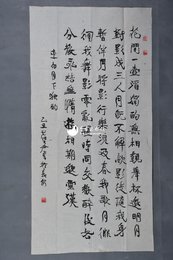 花間一壶酒獨酌無相親舉杯邀明月
對影成三人月既不解飲影徒隨我身
暫伴月將影行樂須及春我歌月徘
徊我舞影零亂醒時同交歡醉後各
分散永結無情遊相期邈雲漢
李白月下獨酌